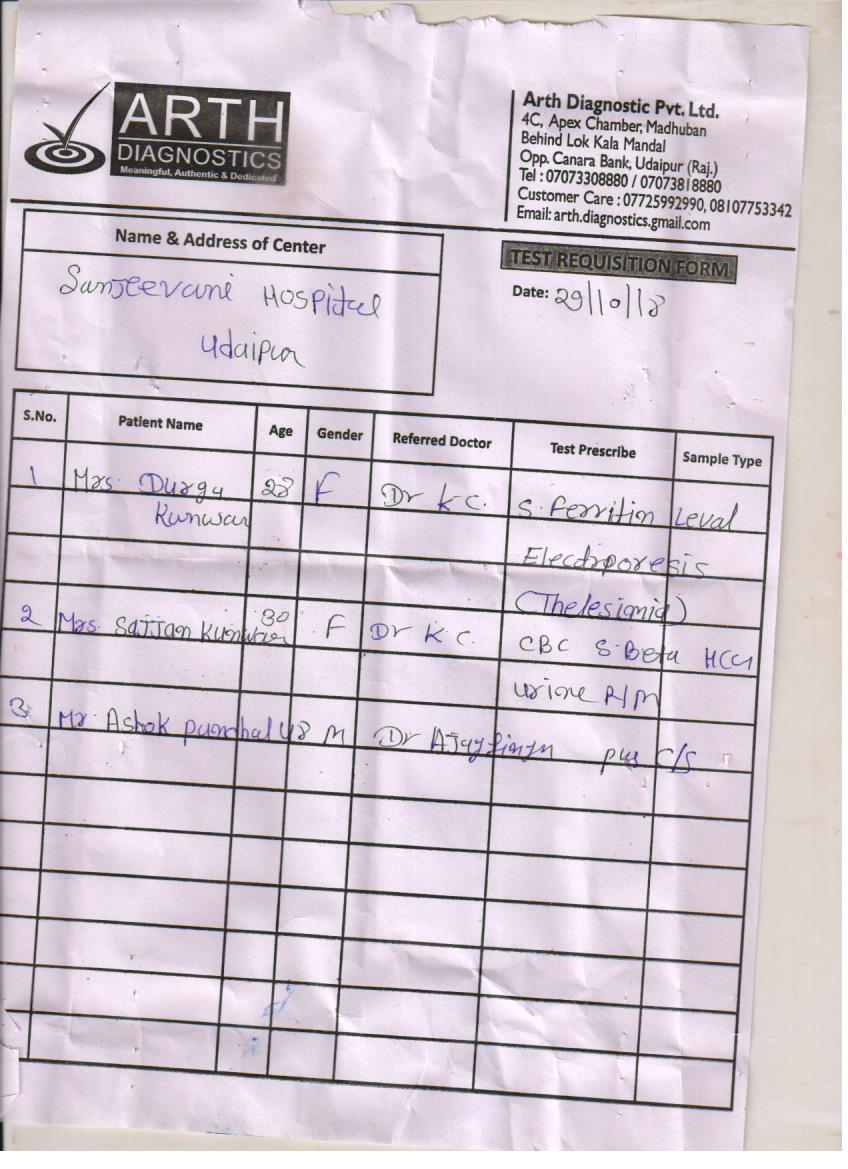 ARTH
DIAGNOSTICS
Meaningful, Authentic & Dedicated
Arth Diagnostic Pvt. Ltd.
4C, Apex Chamber, Madhuban
Behind Lok Kala Mandal
Opp. Canara Bank, Udaipur (Raj.)
Tel : 07073308880 / 07073818880
Customer Care : 07725992990, 08107753342
Email: arth.diagnostics.gmail.com
Name & Address of Center
Sanjeevani Hospital
Udaipur
TEST REQUISITION FORM
Date: 29/10/18
S.No. Patient Name Age Gender Referred Doctor Test Prescribe Sample Type
1 Mrs. Durga 28 F Dr K C. S. Ferritin Leval
Kunwar
Electroporesis
(Thelesimia)
2 Mrs. Sajjan Kunwar 30 F Dr K C. CBC S. Beta HCG
urine R/M
3 Mr. Ashok 48 M Dr pus C/S